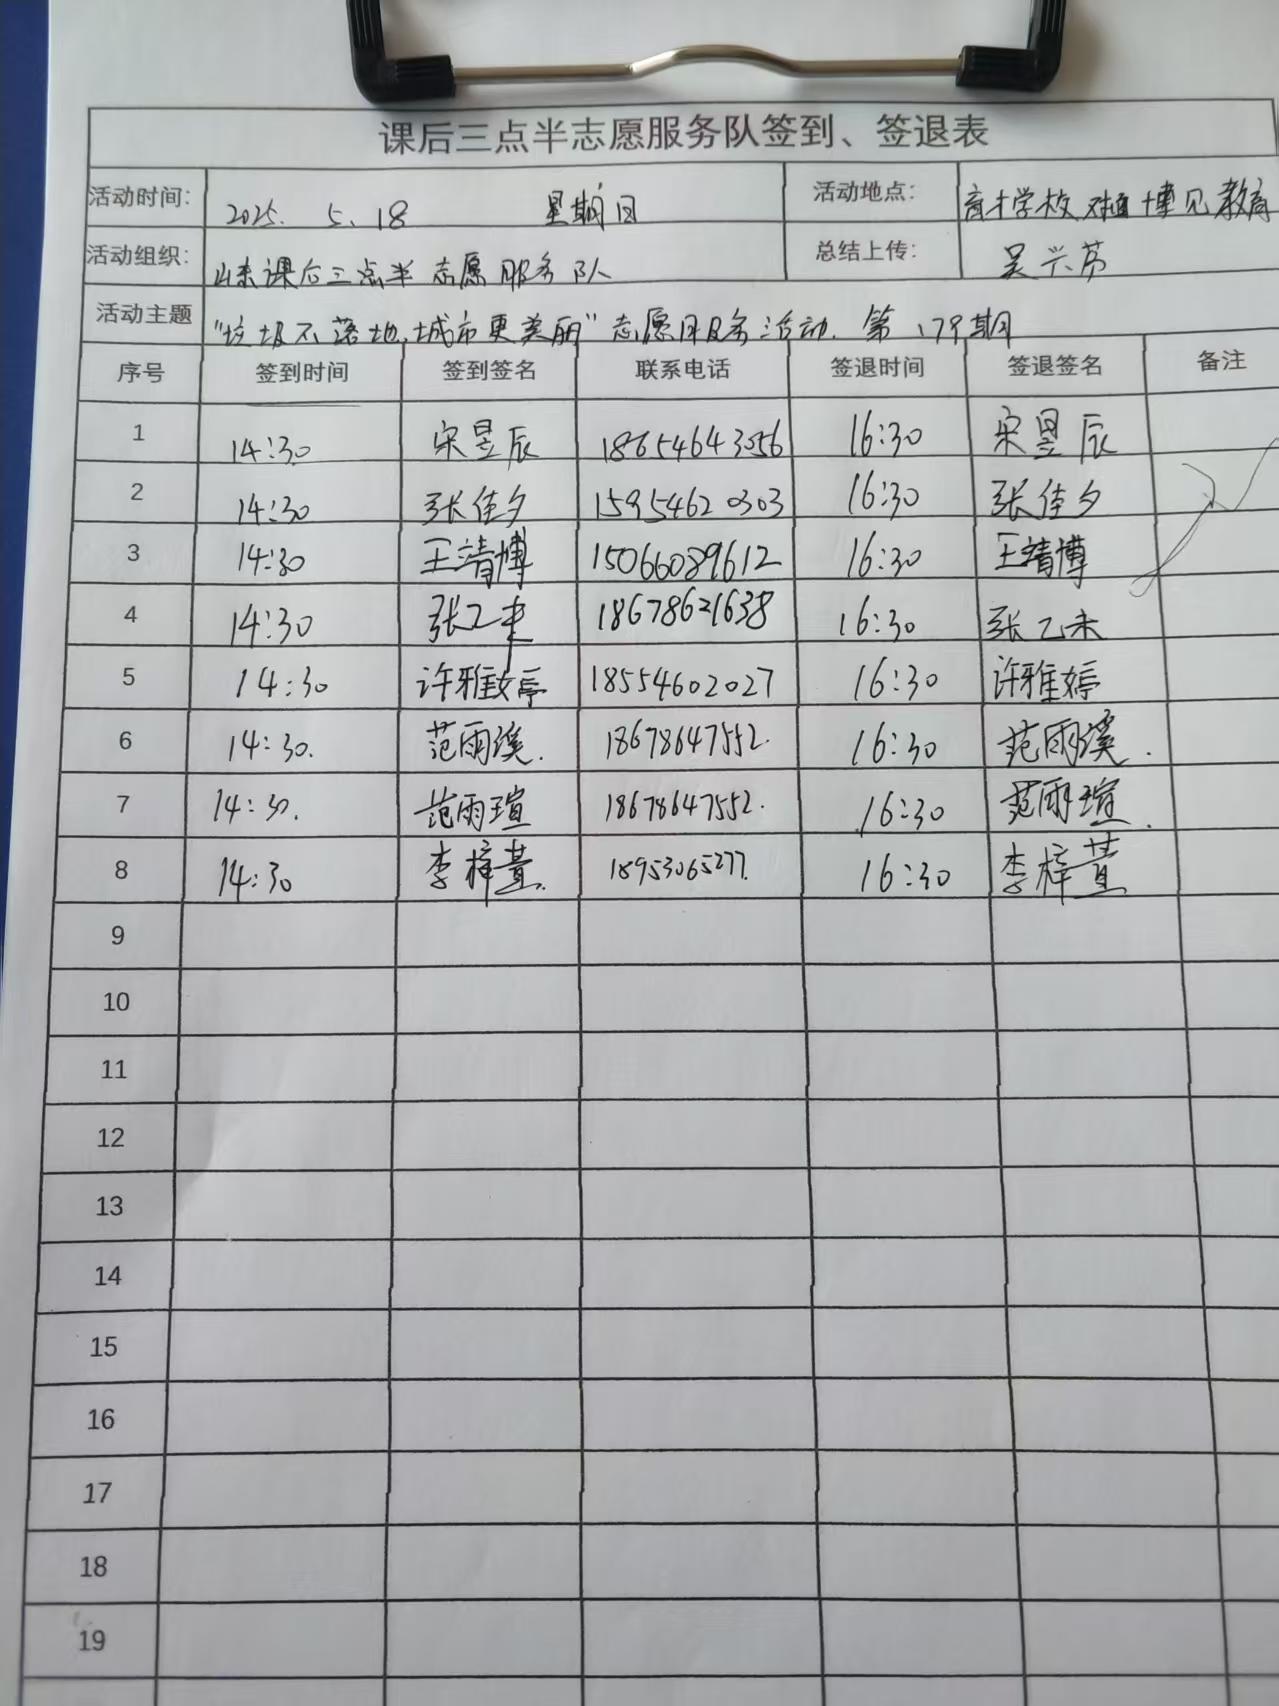 课后三点半志愿服务队签到、签退表
活动时间： 2025. 5.18 星期日 活动地点： 育才学校对面博见教育
活动组织： 山东课后三点半志愿服务队 总结上传： 吴兴芬
活动主题 "垃圾不落地,城市更美丽"志愿服务活动.第179期
序号 签到时间 签到签名 联系电话 签退时间 签退签名 备注
1 14:30 宋昱辰 18654643056 16:30 宋昱辰
2 14:30 张佳夕 15954620303 16:30 张佳夕
3 14:30 王靖博 15066089612 16:30 王靖博
4 14:30 张乙未 18678621638 16:30 张乙未
5 14:30 许雅婷 18554602027 16:30 许雅婷
6 14:30. 范雨溪. 18678647552. 16:30 范雨溪.
7 14:30. 范雨瑄 18678647552. 16:30 范雨瑄.
8 14:30 李梓萱. 18953065277. 16:30 李梓萱
9
10
11
12
13
14
15
16
17
18
19